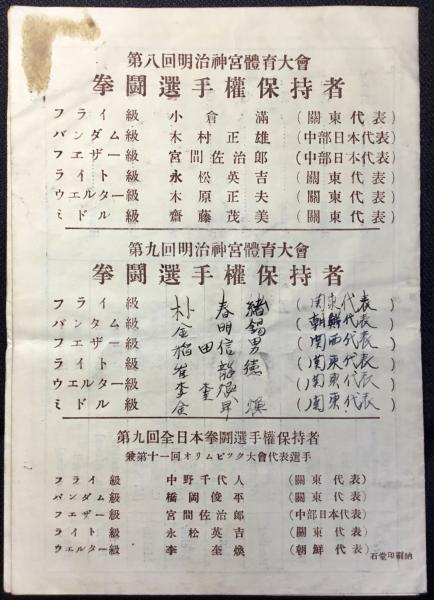 第八回明治神宮體育大會
拳鬪選手權保持者
フライ級 小倉滿 (關東代表)
バンダム級 木村正雄 (中部日本代表)
フエザー級 宮間佐治郎 (中部日本代表)
ライト級 永松英吉 (關東代表)
ウエルター級 木原正夫 (關東代表)
ミドル級 齋藤茂美 (關東代表)
第九回明治神宮體育大會
拳鬪選手權保持者
フライ級 朴春緒 (関東代表)
バンタム級 金明錫 (朝鮮代表)
フエザー級 稲田信男 (関西代表)
ライト級 崔龍德 (関東代表)
ウエルター級 李奎煥 (関東代表)
ミドル級 金 (関東代表)
第九回全日本拳鬪選手權保持者
兼第十一回オリムピック大會代表選手
フライ級 中野千代人 (關東代表)
バンダム級 橋岡俊平 (關東代表)
フエザー級 宮間佐治郎 (中部日本代表)
ライト級 永松英吉 (關東代表)
ウエルター級 李奎煥 (朝鮮代表)
石堂印刷納